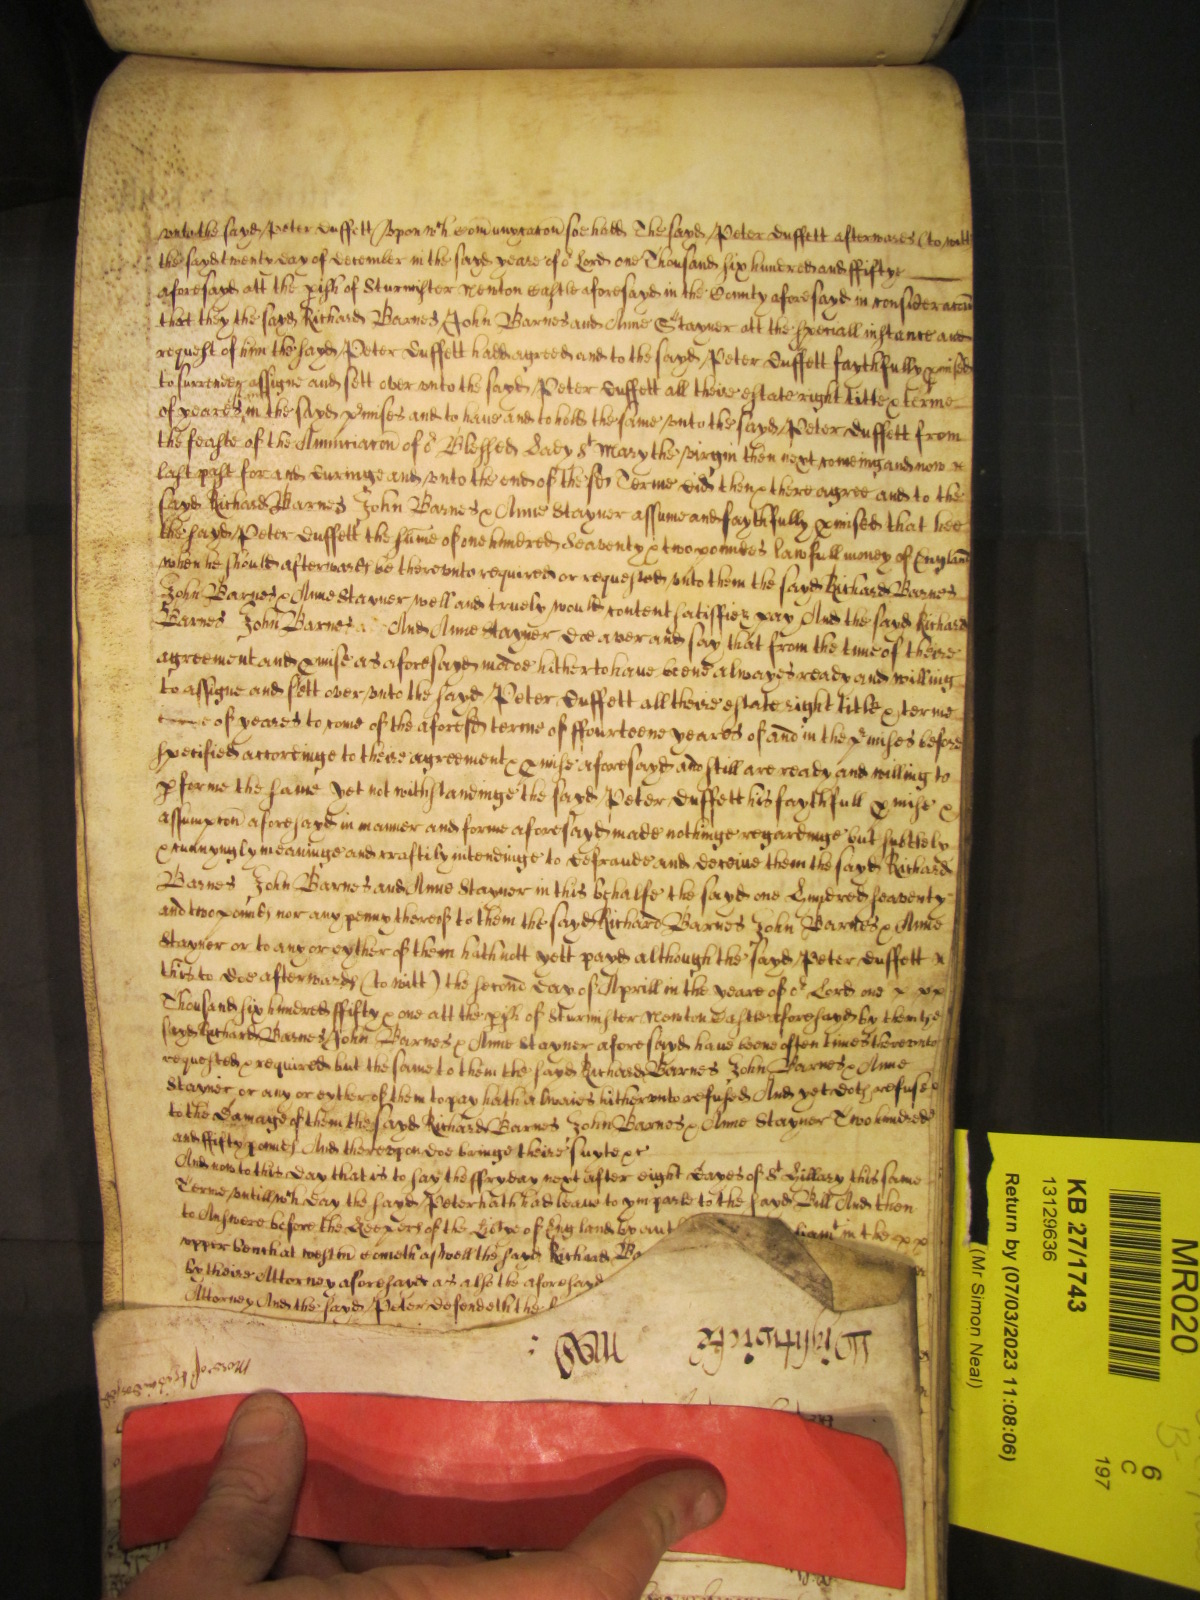 vnto the sayd Peter Duffett Vpon wch comunycacon soe hadd The sayd Peter Duffett afterwards (to witt
the sayd twenty day of December in the sayd yeare of or Lord one Thousand six hundred and ffiftye
aforesayd att the pish of Sturmister Newton Castle aforesayd in the County aforesayd in consideracon
that they the sayd Richard Barnes John Barnes and Anne Stayner att the speciall instance and
request of him the sayd Peter Duffett hadd agreed and to the sayd Peter Duffett faythfully pmised
to surrender assigne and sett over vnto the sayd Peter Duffett all theire estate right title & terme
of yeares in the sayd pmises and to haue and to hold the same vnto the sayd Peter Duffett from
the feaste of the Annunciacon of or Blessed Lady St Mary the virgin then next comeing and now
last past for and duringe and vnto the end of the sd Terme did then & there agree and to the
sayd Richard Barnes John Barnes & Anne Stayner assume and faythfully pmised that hee
the sayd Peter Duffett the sume of one hundred Seaventy & two poundes lawfull money of England
when he should afterwards be therevnto required or requested vnto them the sayd Richard Barnes
John Barnes & Anne Stayner well and truely would content satisfie & pay And the sayd Richard
Barnes John Barnes And Anne Stayner doe aver and say that from the time of theire
agreement and pmise as aforesayd made hitherto have beene alwayes ready and willing
to assigne and sett over vnto the sayd Peter Duffett all theire estate right title & terme
of yeares to come of the aforesd terme of ffourteene yeares of and in the pmises before
specified accordinge to theire agreement & pmise aforesayd and still are ready and willing to
pforme the same yet not withstandinge the sayd Peter Duffett his faythfull pmise &
assumpcon aforesayd in manner and forme aforesayd made nothinge regardinge but subtely
& cunnyngly meaninge and craftily intendinge to defraude and deceive them the sayd Richard
Barnes John Barnes and Anne Stayner in this behalfe the sayd one hundred seaventy
and two pounds nor any penny thereof to them the sayd Richard Barnes John Barnes & Anne
Stayner or to any or eyther of them hath nott yett payd although the sayd Peter Duffett
this to doe afterwards (to witt) the second day of Aprill in the yeare of or Lord one
Thousand six hundred ffifty & one att the pish of Sturmister Newton Castle aforesayd by them the
sayd Richard Barnes John Barnes & Anne Stayner aforesayd have beene often times therevnto
requested & required but the same to them the sayd Richard Barnes John Barnes & Anne
Stayner or any or eyther of them to pay hath alwaies hitherunto refused And yet doth refuse
to the damage of them the sayd Richard Barnes John Barnes & Anne Stayner Two hundred
and ffifty pounds And therevpon doe bringe theire suyte &c
And now to this day that is to say the ffryday next after eight dayes of St Hillary this same
Terme vntill wch day the sayd Peter hath had leave to ymparle to the sayd Bill And then
to Answere before the Keepers of the Libtye of England by aut in the
vpper bench at westm cometh aswell the sayd Richard Ba
by theire Attorney aforesayd as also the aforesayd
Attorney And the sayd Peter defendeth the
Wightwicke
MR020
6
C
197
KB 27/1743
13129636
Return by (07/03/2023 11:08:06)
(Mr Simon Neal)